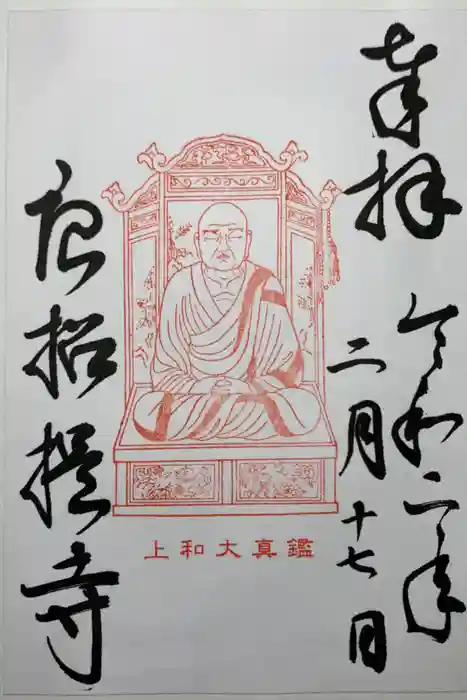 奉拝
令和二年
二月十七日
上和大真鑑
唐招提寺